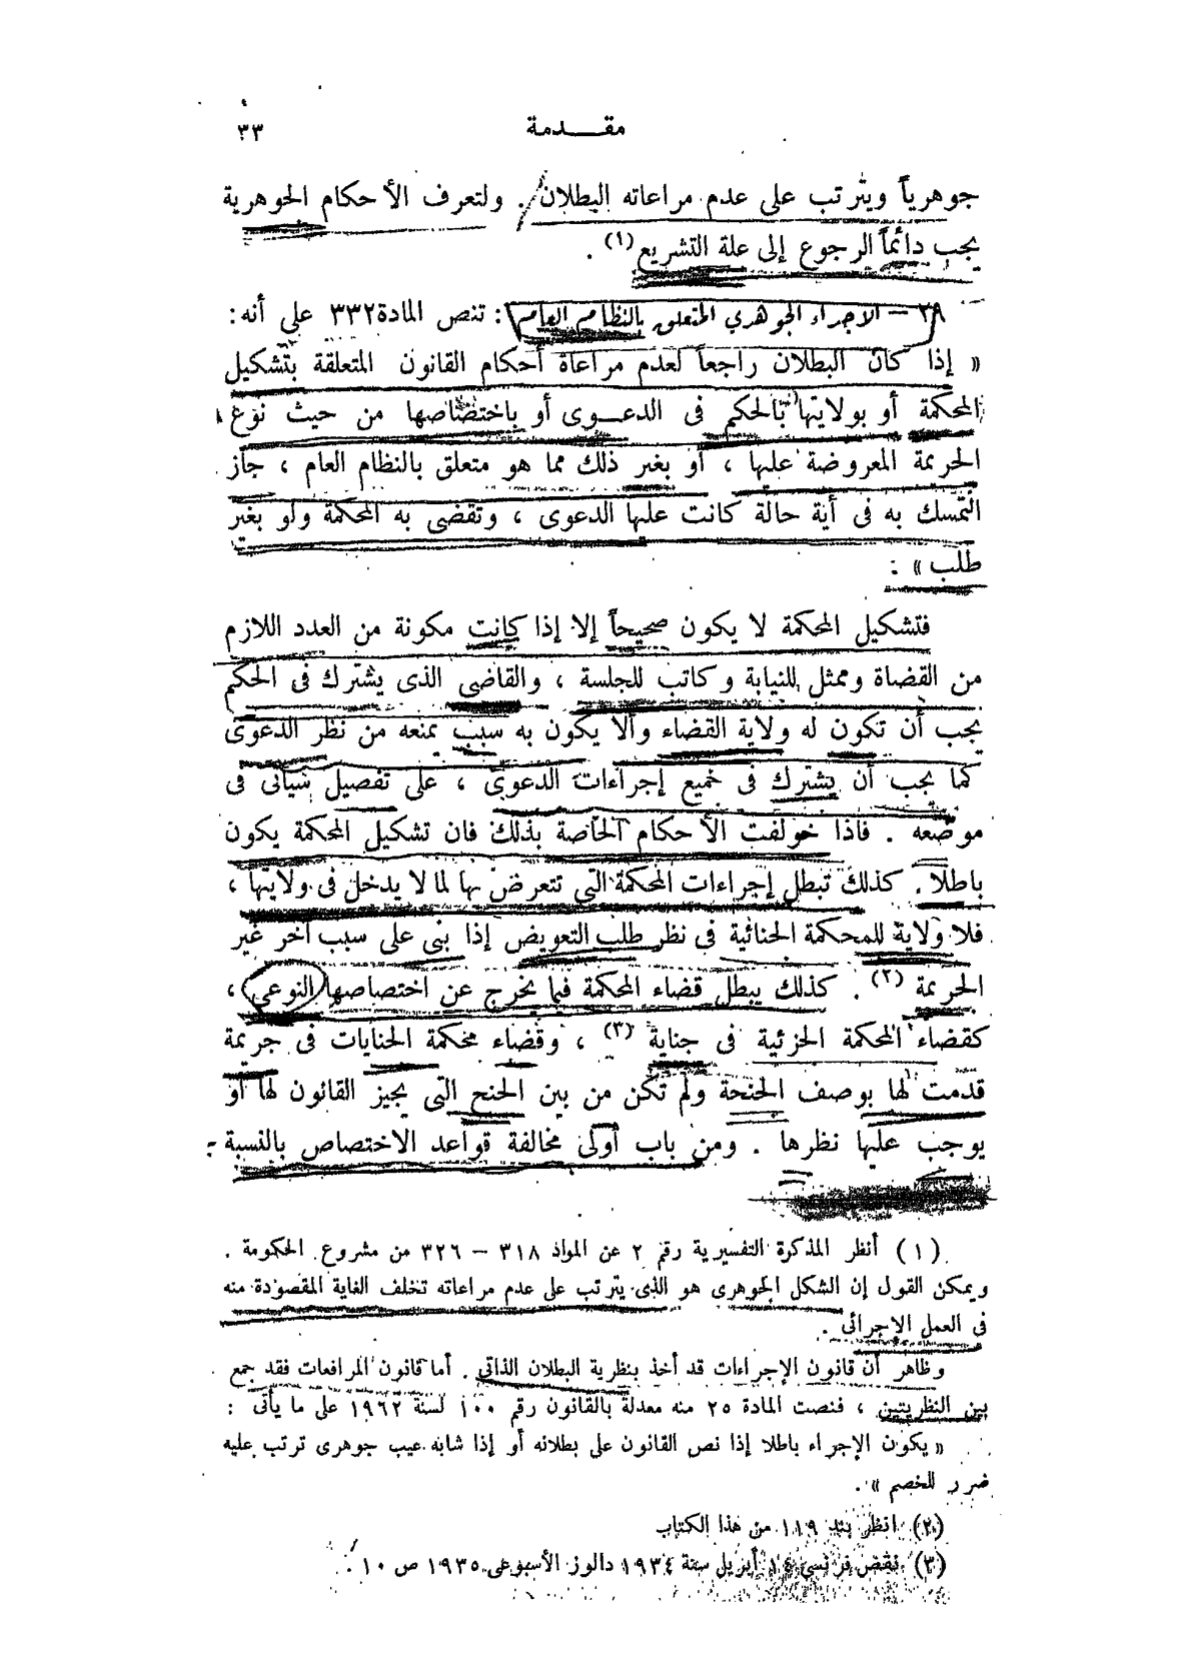 مقـــدمة
٣٣
جوهرياً ويترتب على عدم مراعاته البطلان . ولتعرف الأحكام الجوهرية
يجب دائماً الرجوع إلى علة التشريع (١) .
٣٨ — الاجراء الجوهري المتعلق بالنظام العام : تنص المادة ٣٣٢ على أنه :
« إذا كان البطلان راجعاً لعدم مراعاة أحكام القانون المتعلقة بتشكيل
المحكمة أو بولايتها بالحكم فى الدعــوى أو باختصاصها من حيث نوع
الجريمة المعروضة عليها ، أو بغير ذلك مما هو متعلق بالنظام العام ، جاز
التمسك به فى أية حالة كانت عليها الدعوى ، وتقضى به المحكمة ولو بغير
طلب » .
فتشكيل المحكمة لا يكون صحيحاً إلا إذا كانت مكونة من العدد اللازم
من القضاة وممثل للنيابة وكاتب للجلسة ، والقاضى الذى يشترك فى الحكم
يجب أن تكون له ولاية القضاء وألا يكون به سبب يمنعه من نظر الدعوى
كما يجب أن يشترك فى جميع إجراءات الدعوى ، على تفصيل سيأتى فى
موضعه . فاذا خولفت الأحكام الخاصة بذلك فان تشكيل المحكمة يكون
باطلا . كذلك تبطل إجراءات المحكمة التى تتعرض بها لما لا يدخل فى ولايتها ،
فلا ولاية للمحكمة الجنائية فى نظر طلب التعويض إذا بنى على سبب آخر غير
الجريمة (٢) . كذلك يبطل قضاء المحكمة فيما يخرج عن اختصاصها النوعى ،
كقضاء المحكمة الجزئية فى جناية (٣) ، وقضاء محكمة الجنايات فى جريمة
قدمت لها بوصف الجنحة ولم تكن من بين الجنح التى يجيز القانون لها أو
يوجب عليها نظرها . ومن باب أولى مخالفة قواعد الاختصاص بالنسبة
(١) أنظر المذكرة التفسيرية رقم ٢ عن المواد ٣١٨ — ٣٢٦ من مشروع الحكومة .
ويمكن القول إن الشكل الجوهرى هو الذى يترتب على عدم مراعاته تخلف الغاية المقصودة منه
فى العمل الإجرائى .
وظاهر أن قانون الإجراءات قد أخذ بنظرية البطلان الذاتى . أما قانون المرافعات فقد جمع
بين النظريتين ، فنصت المادة ٢٥ منه معدلة بالقانون رقم ١٠٠ لسنة ١٩٦٢ على ما يأتى :
« يكون الإجراء باطلا إذا نص القانون على بطلانه أو إذا شابه عيب جوهرى ترتب عليه
ضرر للخصم » .
(٢) انظر بند ١١٩ من هذا الكتاب
(٣) نقض فرنسى ١٤ أبريل سنة ١٩٣٤ دالوز الأسبوعى ١٩٣٥ ص ١٠ .